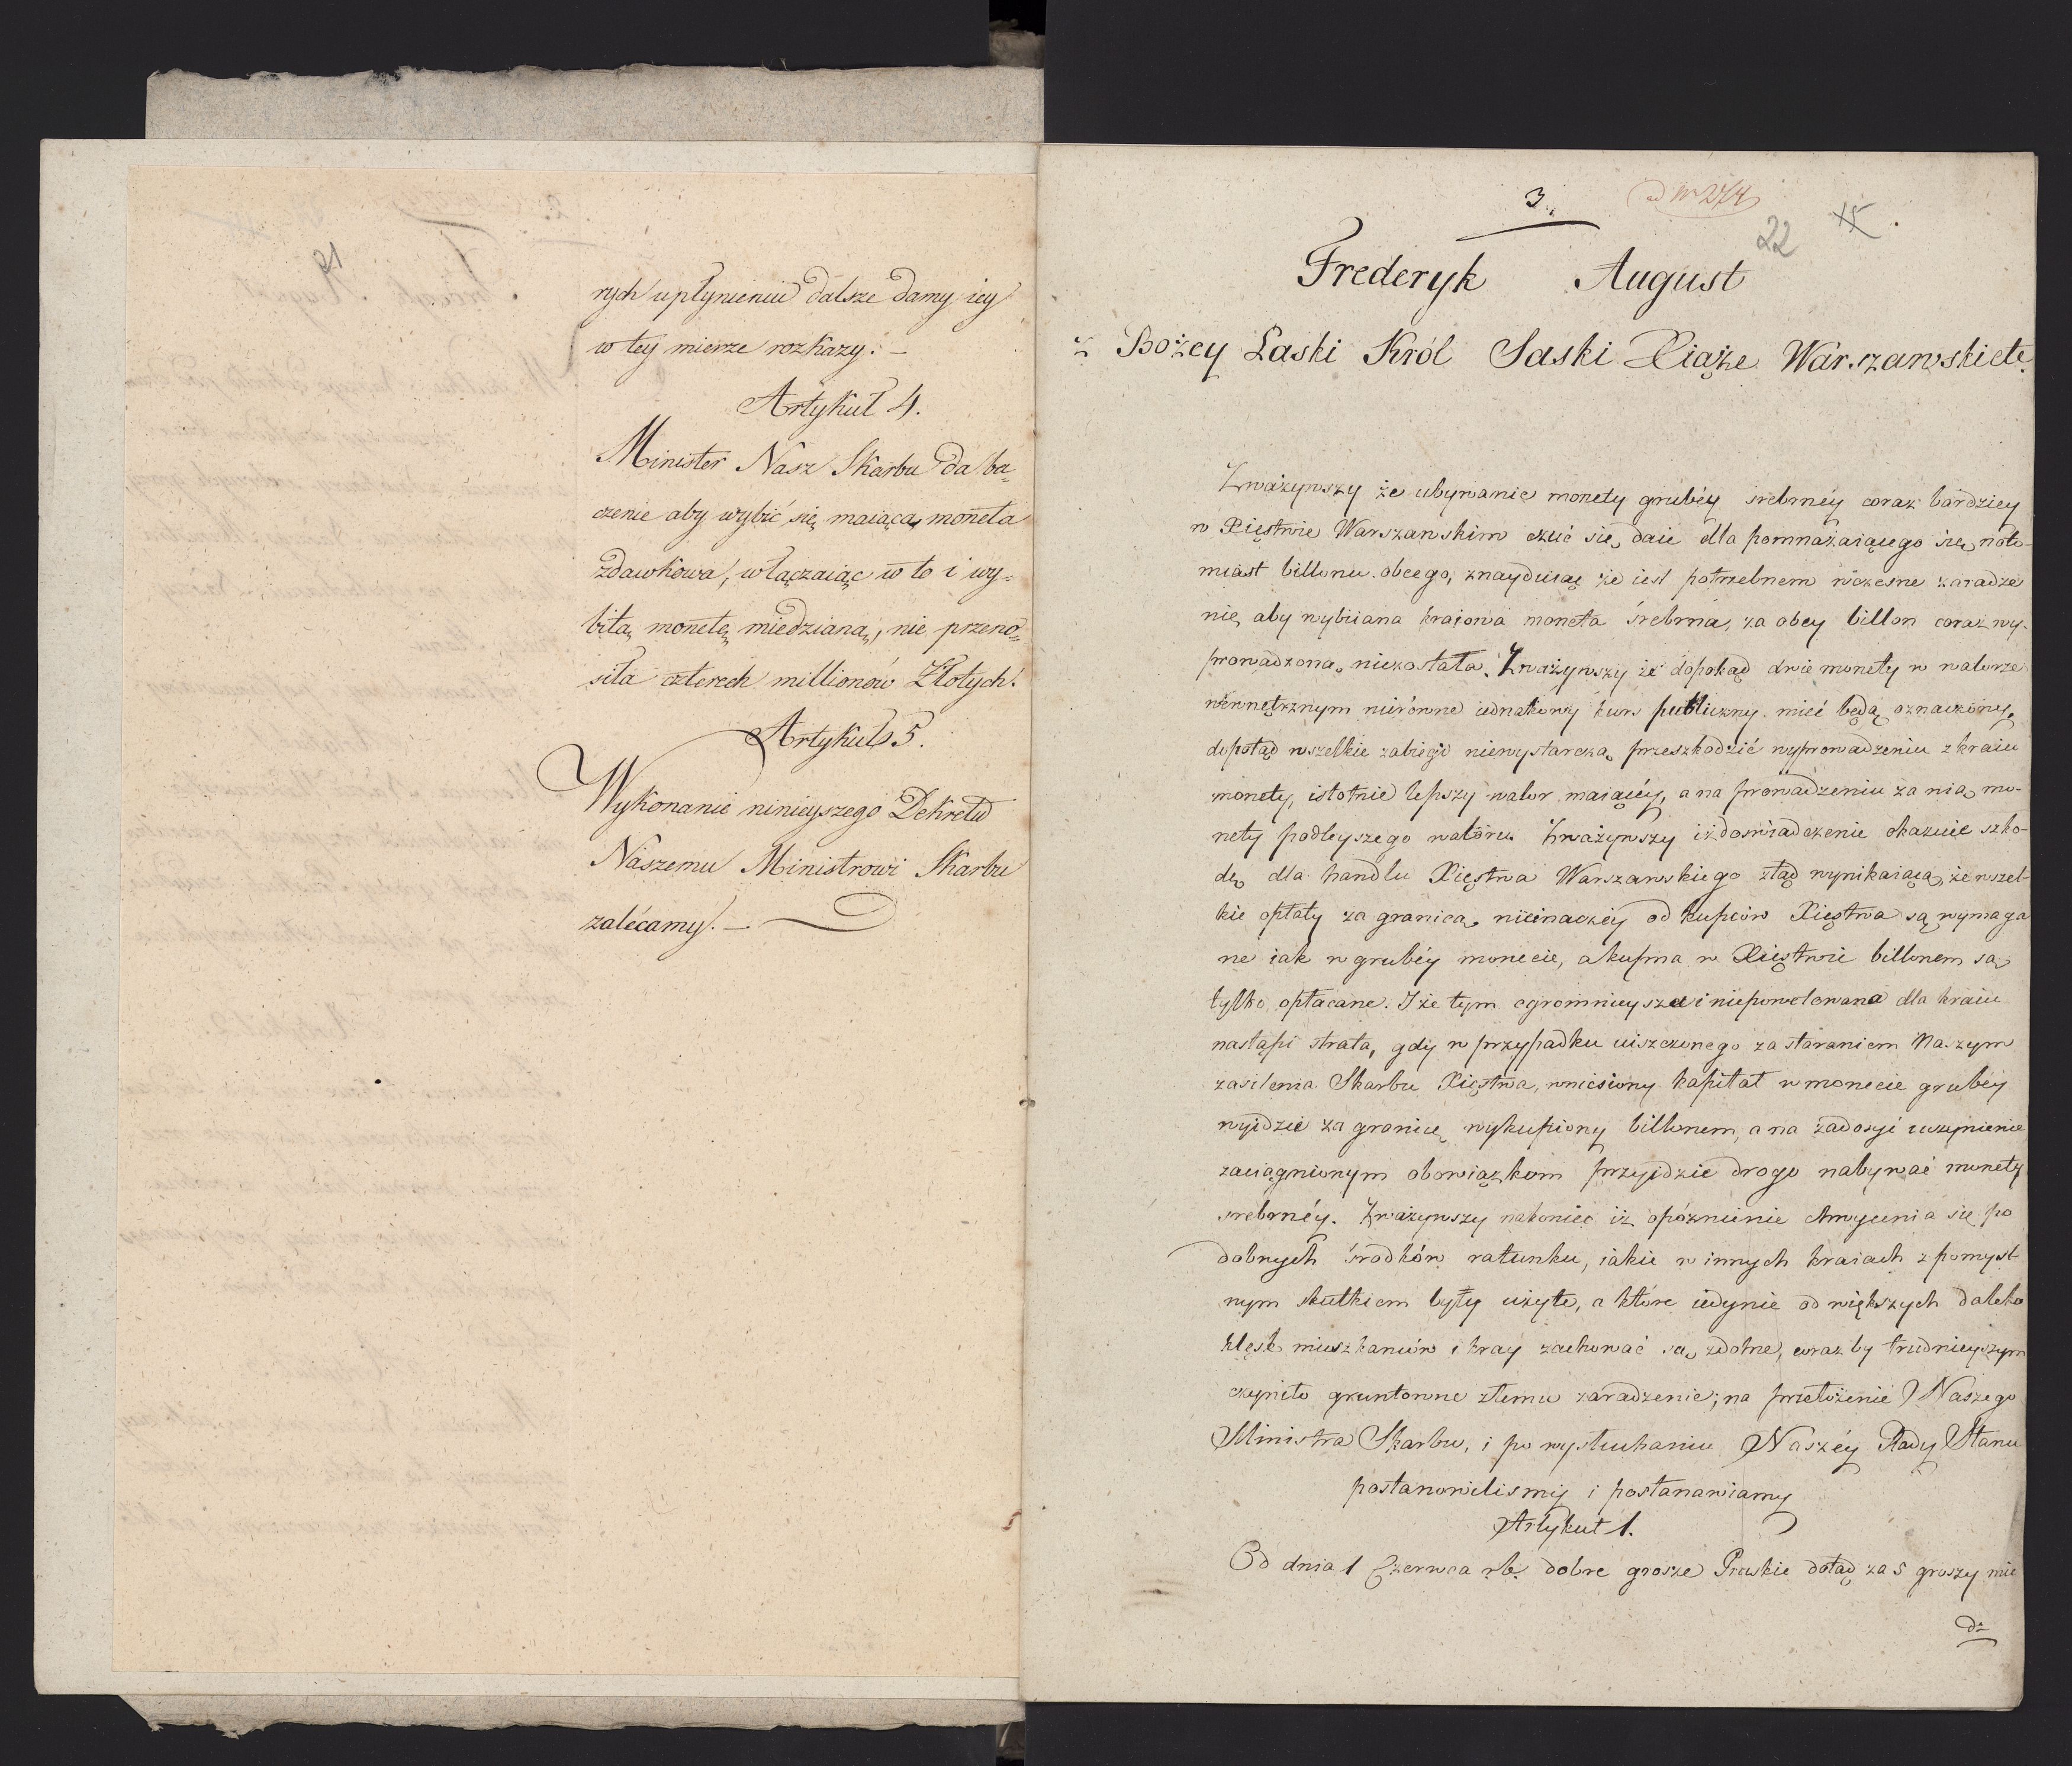 rych upłynieniu dalsze damy iey
w tey mierze rozkazy. —
Artykuł 4.
Minister Nasz Skarbu da ba-
czenie aby wybić się maiąca moneta
zdawkowa, włączaiąc w to i wy-
bitą monetę miedzianą, nie przeno-
siła czterech millionów Złotych.
Artykuł 5.
Wykonanie ninieyszego Dekretu
Naszemu Ministrowi Skarbu
zalécamy. —
3.
22
15
Frederyk August
z Bożey Łaski Król Saski Xiąże Warszawski etc.
Zważywszy że ubywanie monety grubéy srebrnéy coraz bardziey
w Xięstwie Warszawskim czuć się daie dla pomnażaiącego się nato-
miast billonu obcego, znayduiąc że iest potrzebnem wczesne zaradze
nie, aby wybiiana kraiowa moneta śrebrna, za obcy billon coraz wy-
prowadzona niezostała. Zważywszy że dopokąd dwie monety w walorze
wewnętrznym nierówne iednakowy kurs publiczny mieć będą oznaczony,
dopotąd wszelkie zabiegi niewystarczą przeszkodzić wyprowadzeniu z kraiu
monety, istotnie lepszy walor maiącéy, a na prowadzeniu za nią mo-
nety podleyszego waloru. Zważywszy iż doświadczenie okazuie szko-
dę dla handlu Xięstwa Warszawskiego ztąd wynikaiącą, że wszel-
kie opłaty za granicą nieinaczéy od kupców Xięstwa są wymaga
ne iak w grubéy monecie, a kupna w Xięstwie billonem są
tylko opłacane. I że tym ogromnieysza i niepowetowana dla kraiu
nastąpi strata, gdy w przypadku uiszczonego za staraniem Naszym
zasilenia Skarbu Xięstwa, wniesiony kapitał w monecie grubéy
wyidzie za granicę wykupiony billonem, a na zadosyć uczynienie
zaciągnionym obowiązkom przyidzie drogo nabywać monety
srebrnéy. Zważywszy nakoniec iż opóźnienie chwycenia się po
dobnych środków ratunku, iakie w innych kraiach z pomyśl-
nym skutkiem były użyte, a które iedynie od większych daleko
klęsk mieszkańców i kray zachować są zdolne, coraz by trudnieyszym
czyniło gruntowne złemu zaradzenie; na przełożenie Naszego
Ministra Skarbu, i po wysłuchaniu Naszéy Rady Stanu
postanowilismy i postanawiamy
Artykuł 1.
Od dnia 1 Czerwca r.b. dobre grosze Pruskie dotąd za 5 groszy mie